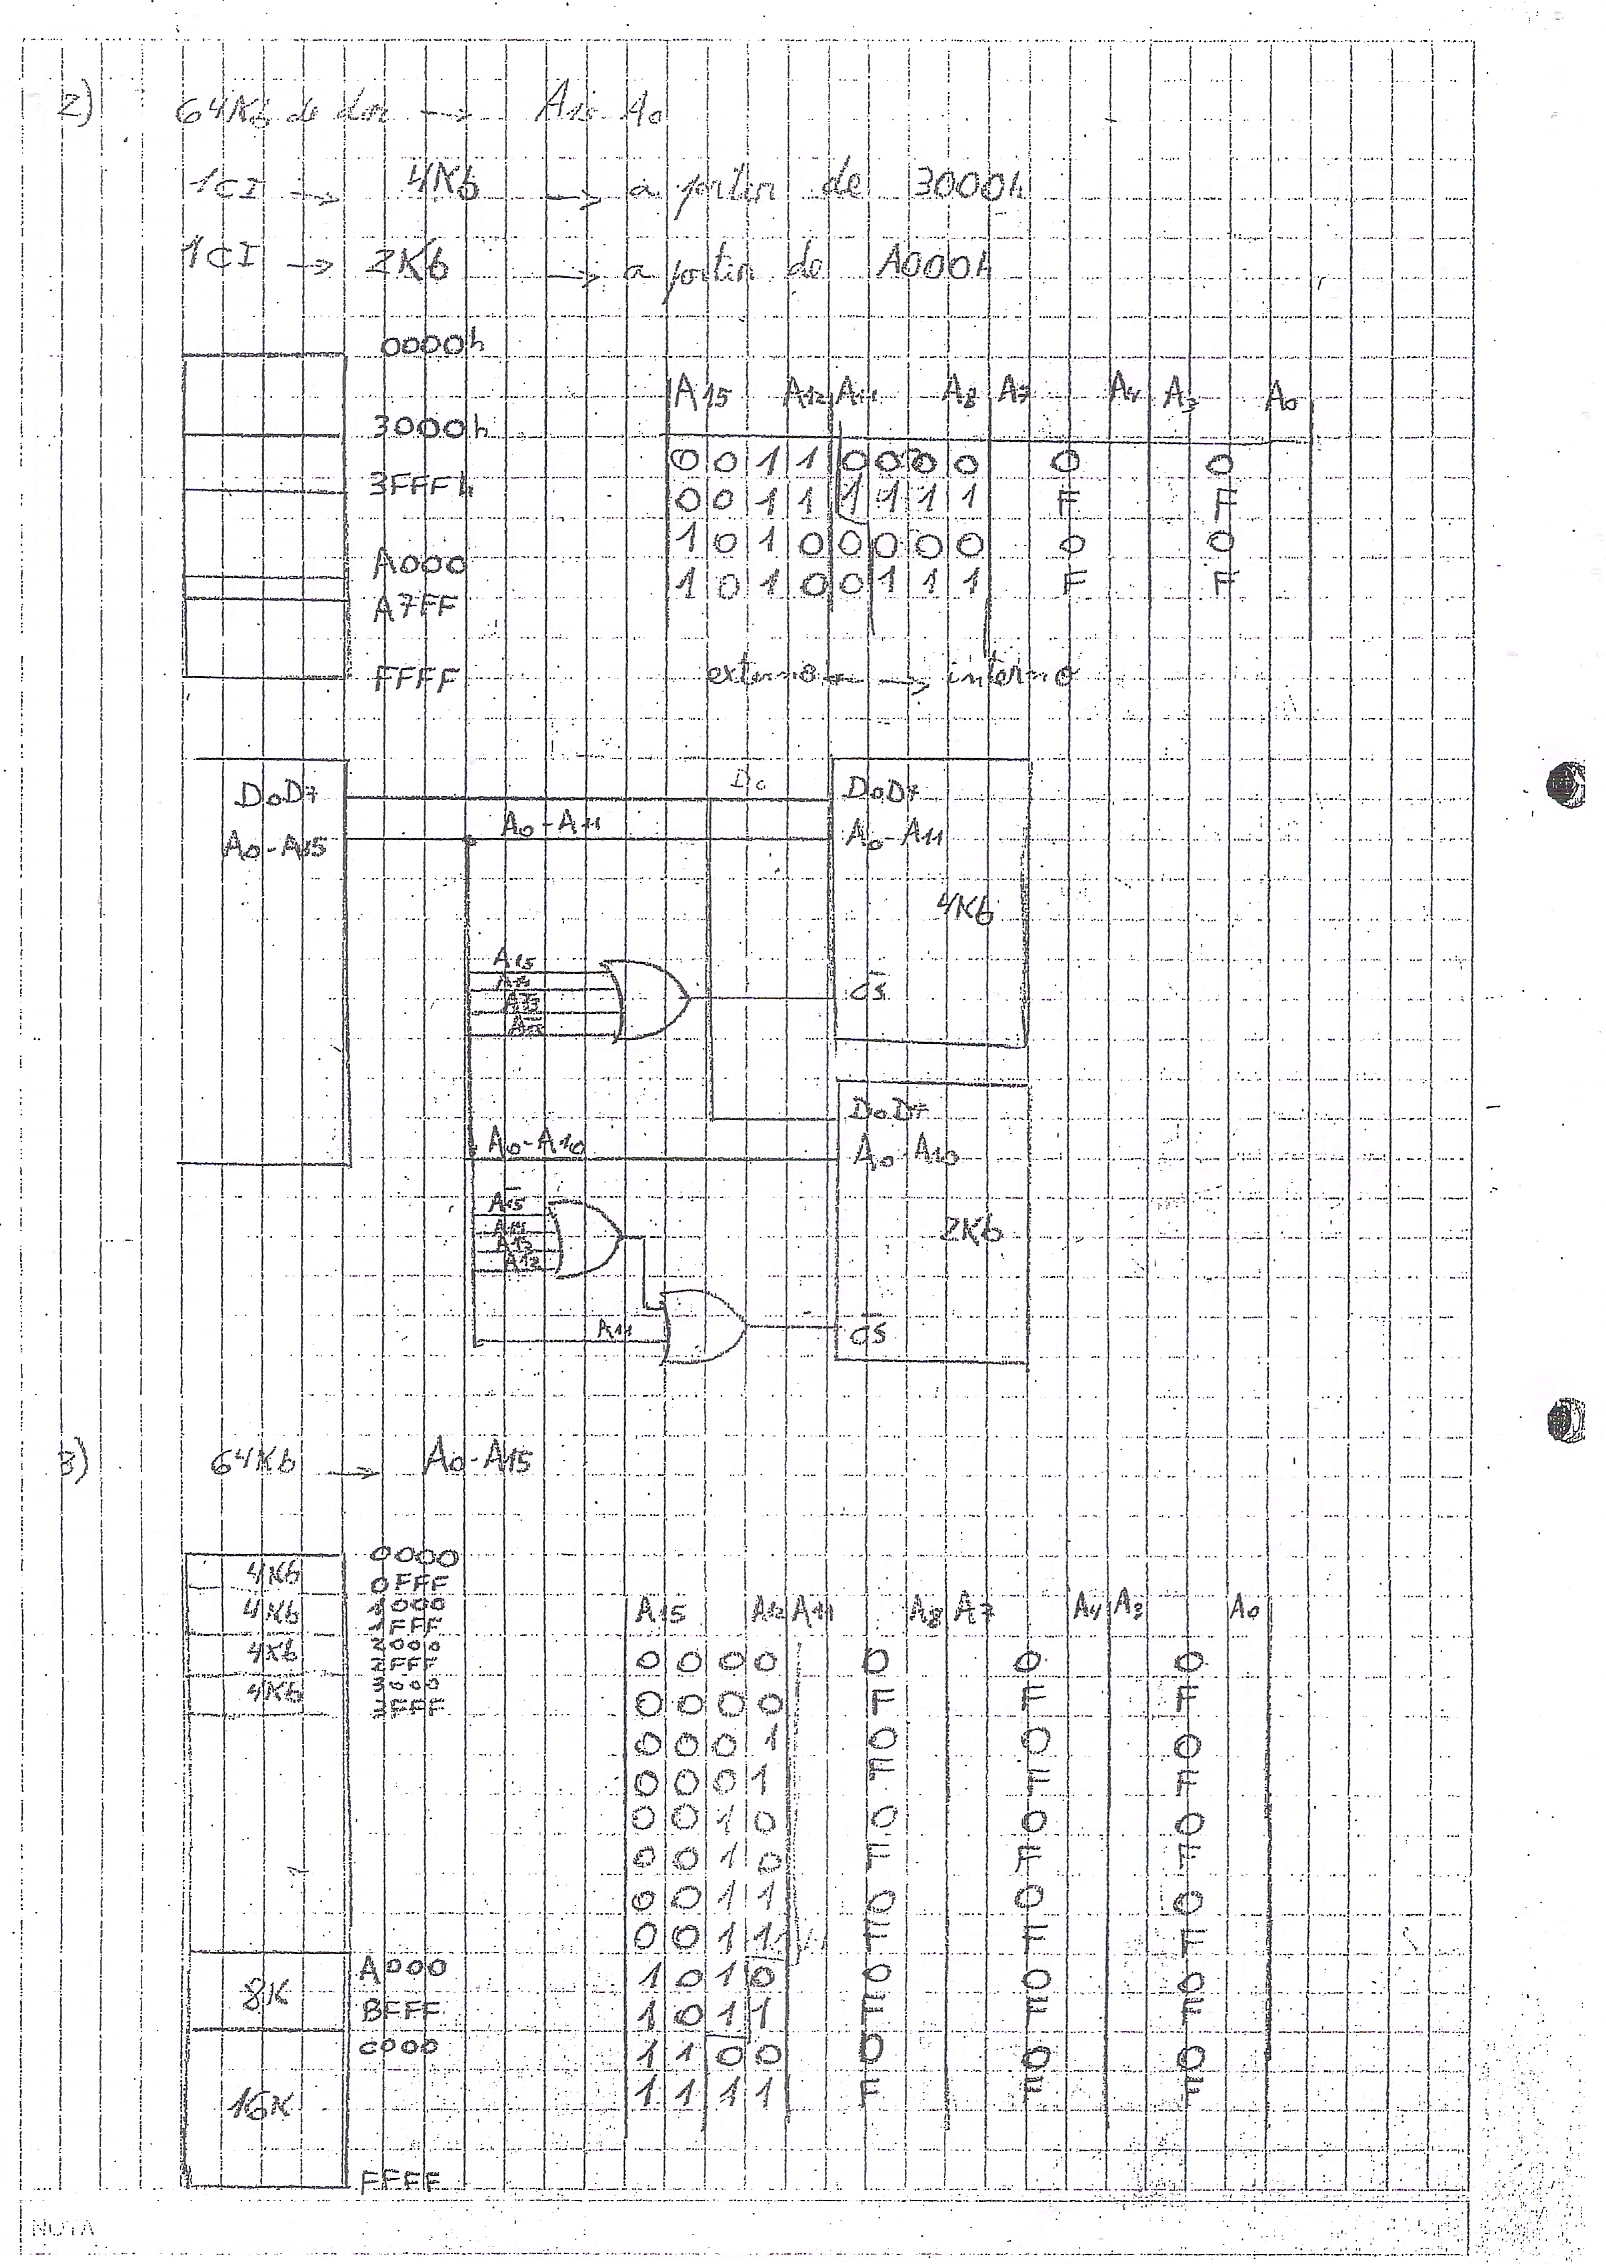 2) 64Kb de → A15 A0
1CI → 4Kb → a partir de 3000h
1CI → 2Kb → a partir de A000h
0000h
3000h
3FFFh
A000
A7FF
FFFF
A15 A12 A11 A8 A7 A4 A3 A0
0 0 1 1 0 0 0 0 0 0
0 0 1 1 1 1 1 1 F F
1 0 1 0 0 0 0 0 0 0
1 0 1 0 0 1 1 1 F F
externo ← → interno
D0D7
A0-A15
D0D7
A0-A11
A0-A11
4Kb
A15
A14
A̅1̅3̅
A̅1̅2̅
C̅S̅
D0D7
A0-A10
A0-A10
2Kb
A̅1̅5̅
A14
A̅1̅3̅
A12
A11
C̅S̅
3) 64Kb → A0-A15
4Kb 0000
0FFF
4Kb 1000
1FFF
4Kb 2000
2FFF
4Kb 3000
3FFF
8K A000
BFFF
16K C000
FFFF
A15 A12 A11 A8 A7 A4 A3 A0
0 0 0 0 0 0 0
0 0 0 0 F F F
0 0 0 1 0 0 0
0 0 0 1 F F F
0 0 1 0 0 0 0
0 0 1 0 F F F
0 0 1 1 0 0 0
0 0 1 1 F F F
1 0 1 0 0 0 0
1 0 1 1 F F F
1 1 0 0 0 0 0
1 1 1 1 F F F
NOTA